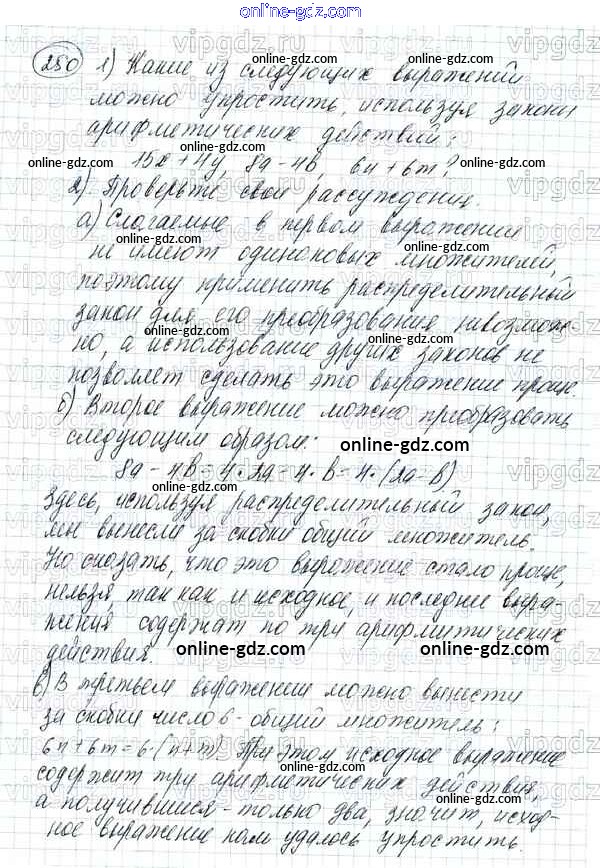 online-gdz.com
280 1) Какие из следующих выражений
можно упростить, используя законы
арифметических действий:
15x + 4y, 8a - 4b, 6n + 6m?
2) Проверьте свои рассуждения.
а) Слагаемые в первом выражении
не имеют одинаковых множителей,
поэтому применить распределительный
закон для его преобразования невозмож-
но, а использование других законов не
позволяет сделать это выражение проще.
б) Второе выражение можно преобразовать
следующим образом:
8a - 4b = 4 · 2a - 4 · b = 4 · (2a - b)
Здесь, используя распределительный закон,
мы вынесли за скобки общий множитель.
Но сказать, что это выражение стало проще,
нельзя, так как и исходное, и последнее выра-
жения содержат по три арифметических
действия.
в) В третьем выражении можно вынести
за скобки число 6 - общий множитель:
6n + 6m = 6 · (n + m). При этом исходное выражение
содержит три арифметических действия,
а получившиеся - только два, значит, исход-
ное выражение нам удалось упростить.